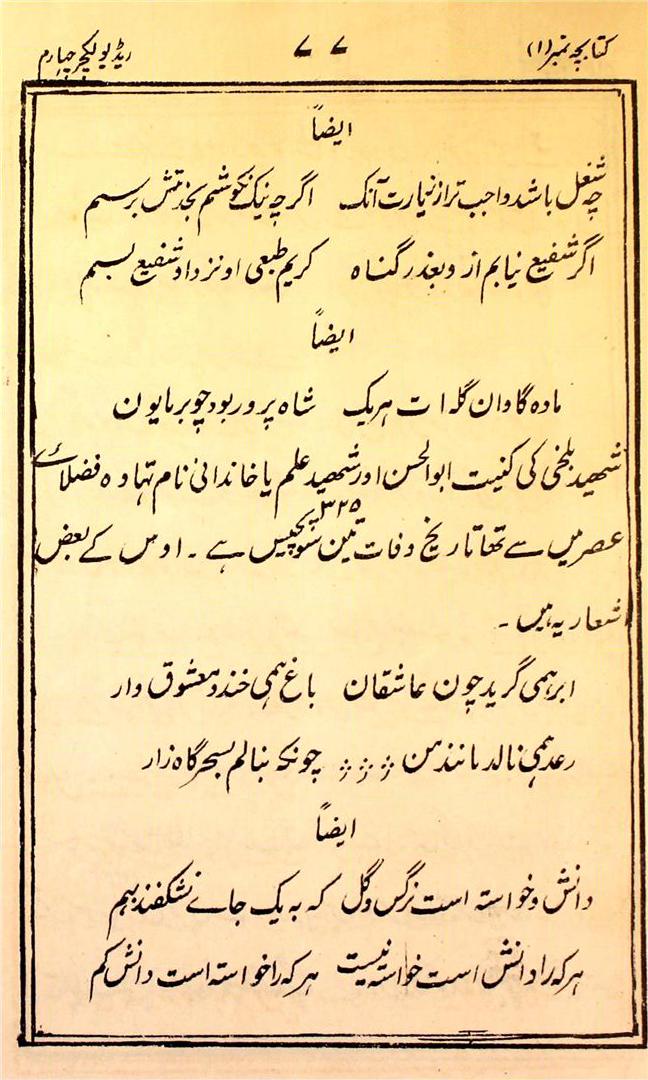 کتابچہ نمبر (۱) ۷۷ ریڈیو لیکچر چہارم
ایضاً
چہ شغل باشد واجب تر از زیارت آنک اگر چہ نیک نکوشم بخدمتش برسم
اگر شفیع نیابم از و بعذر گناہ کریم طبعی او نزد او شفیع بسم
ایضاً
مادہ گاوان گلہ ات ہریک شاہ پرور بود چو برمایون
شھید بلخی کی کنیت ابوالحسن اور شھید علم یا خاندانی نام تہا وہ فضلائے
عصر میں سے تھا تاریخ وفات تین سو پچیس ۳۲۵ ہے ۔ اوس کے بعض
اشعار یہ ہیں ۔
ابر ہمی گرید چون عاشقان باغ ہمی خندد معشوق وار
رعد ہمی نالد مانند من چونکہ بنالم بسحر گاہ زار
ایضاً
دانش و خواستہ است نرگس و گل کہ بہ یک جاے نشکفند بہم
ہر کہ را دانش است خواستہ نیست ہر کہ را خواستہ است دانش کم